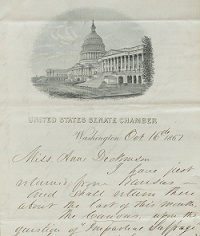 UNITED STATES SENATE CHAMBER
Washington Oct 16th 1867
Miss Anna Dickinson
I have just
returned from Kansas
and shall return there
about the last of this month.
The Canvass upon the
question of Impartial Suffrage